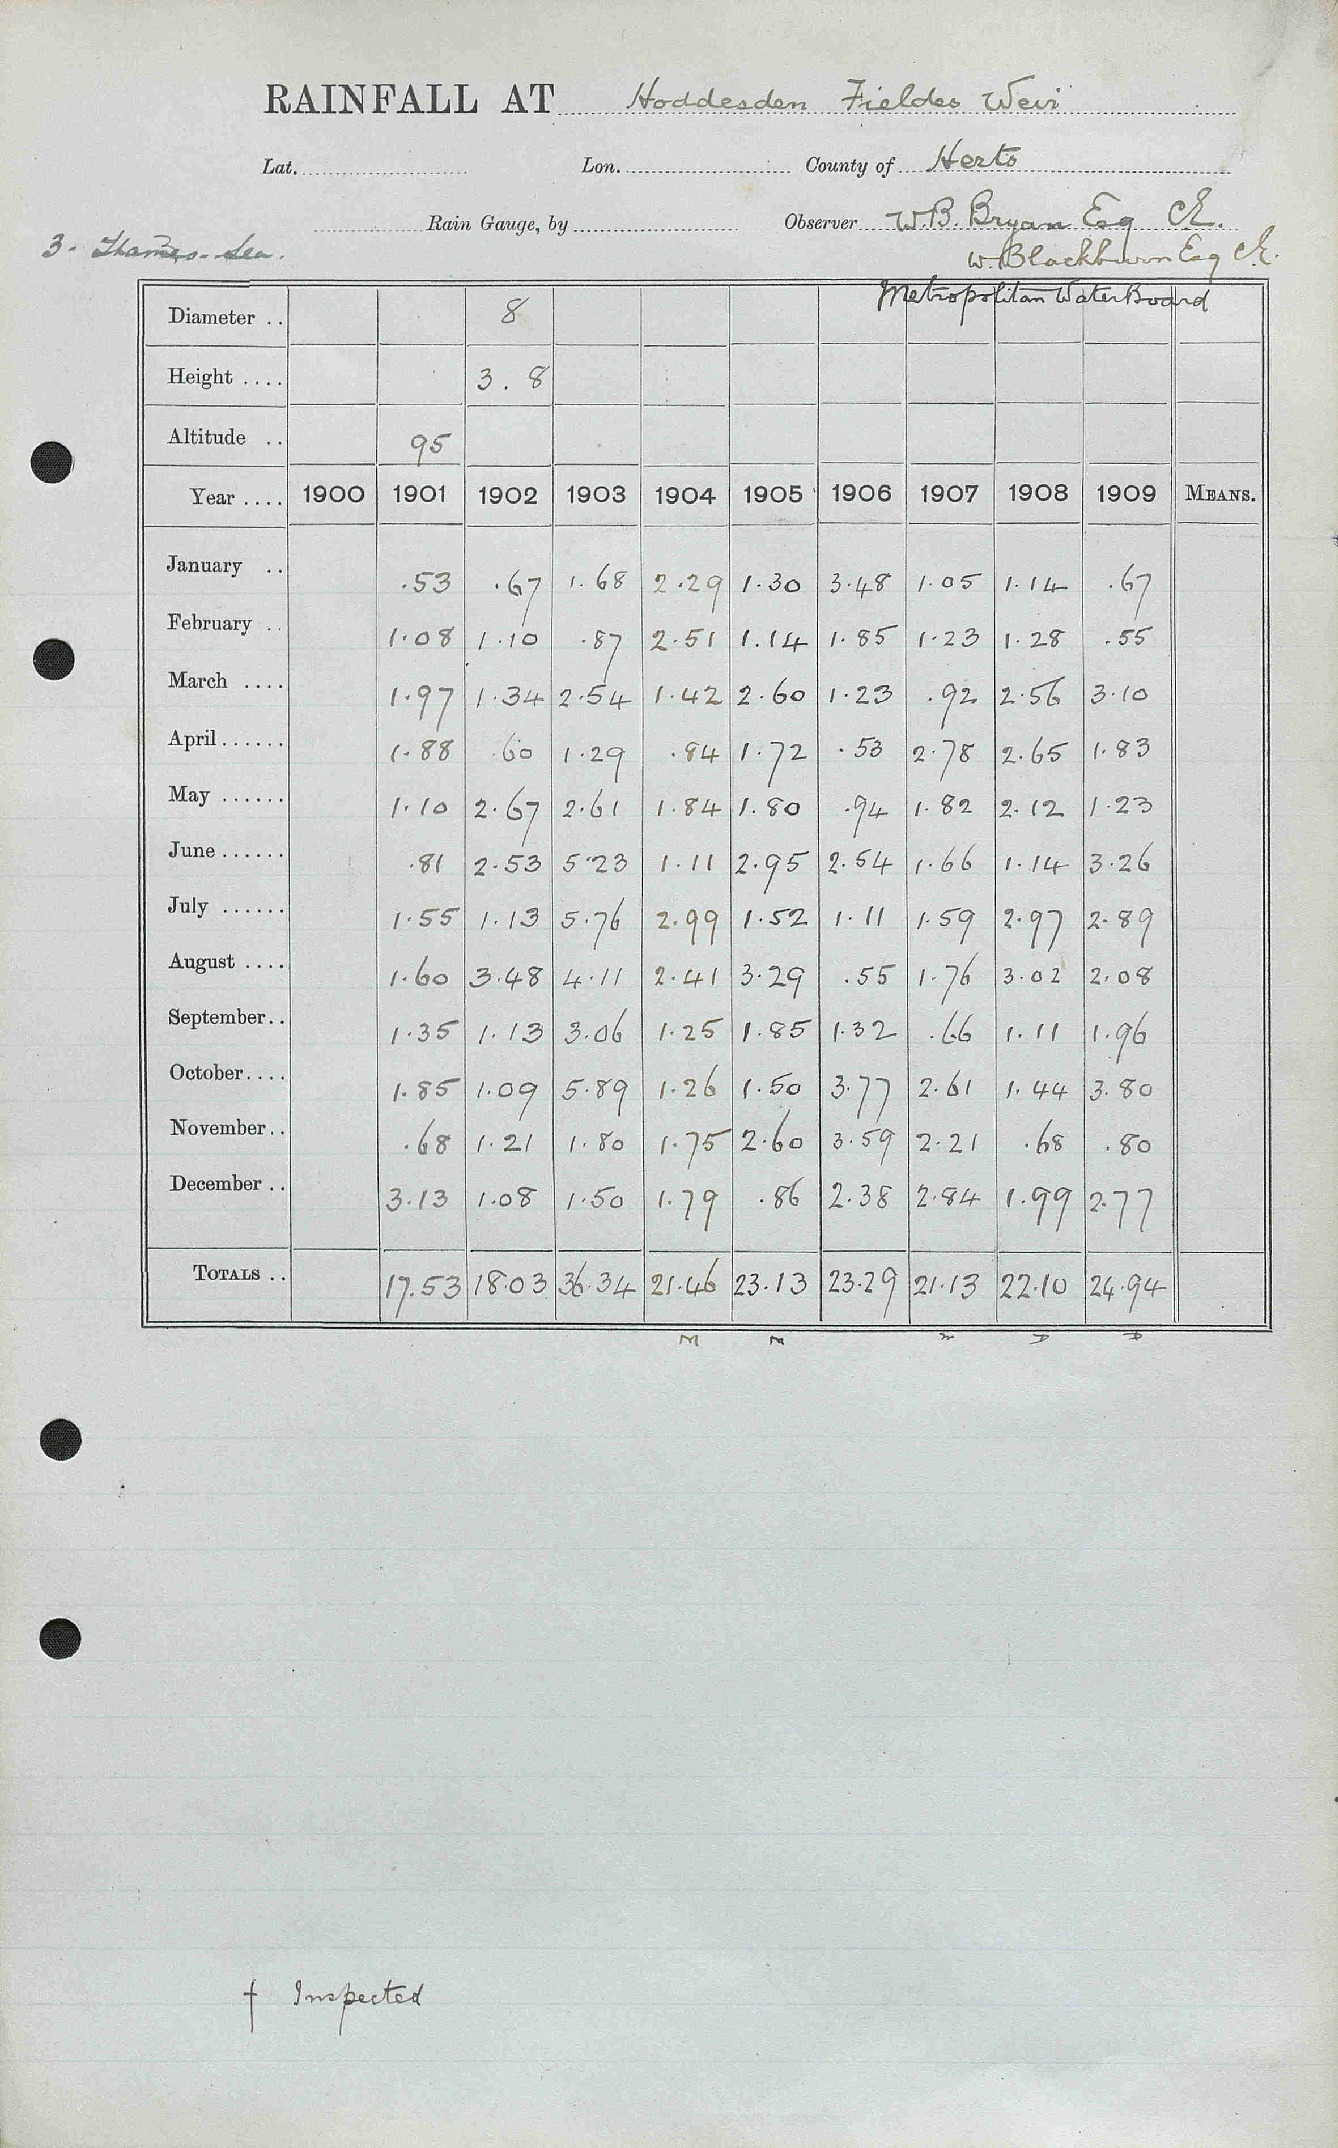 RAINFALL AT Hoddesden Fieldes Weir
Lat. Lon. County of Herts
Rain Gauge, by Observer W.B. Bryan Esq CE.
3. Thames. Lea. W. Blackburn Esq CE.
Metropolitan Water Board
Diameter .. 8
Height .... 3.8
Altitude .. 95
Year .... 1900 1901 1902 1903 1904 1905 1906 1907 1908 1909 MEANS.
January .. .53 .67 1.68 2.29 1.30 3.48 1.05 1.14 .67
February .. 1.08 1.10 .87 2.51 1.14 1.85 1.23 1.28 .55
March .... 1.97 1.34 2.54 1.42 2.60 1.23 .92 2.56 3.10
April ...... 1.88 .60 1.29 .84 1.72 .53 2.78 2.65 1.83
May ...... 1.10 2.67 2.61 1.84 1.80 .94 1.82 2.12 1.23
June ...... .81 2.53 5.23 1.11 2.95 2.54 1.66 1.14 3.26
July ...... 1.55 1.13 5.76 2.99 1.52 1.11 1.59 2.97 2.89
August .... 1.60 3.48 4.11 2.41 3.29 .55 1.76 3.02 2.08
September.. 1.35 1.13 3.06 1.25 1.85 1.32 .66 1.11 1.96
October.... 1.85 1.09 5.89 1.26 1.50 3.77 2.61 1.44 3.80
November.. .68 1.21 1.80 1.75 2.60 3.59 2.21 .68 .80
December .. 3.13 1.08 1.50 1.79 .86 2.38 2.84 1.99 2.77
TOTALS .. 17.53 18.03 36.34 21.46 23.13 23.29 21.13 22.10 24.94
† Inspected